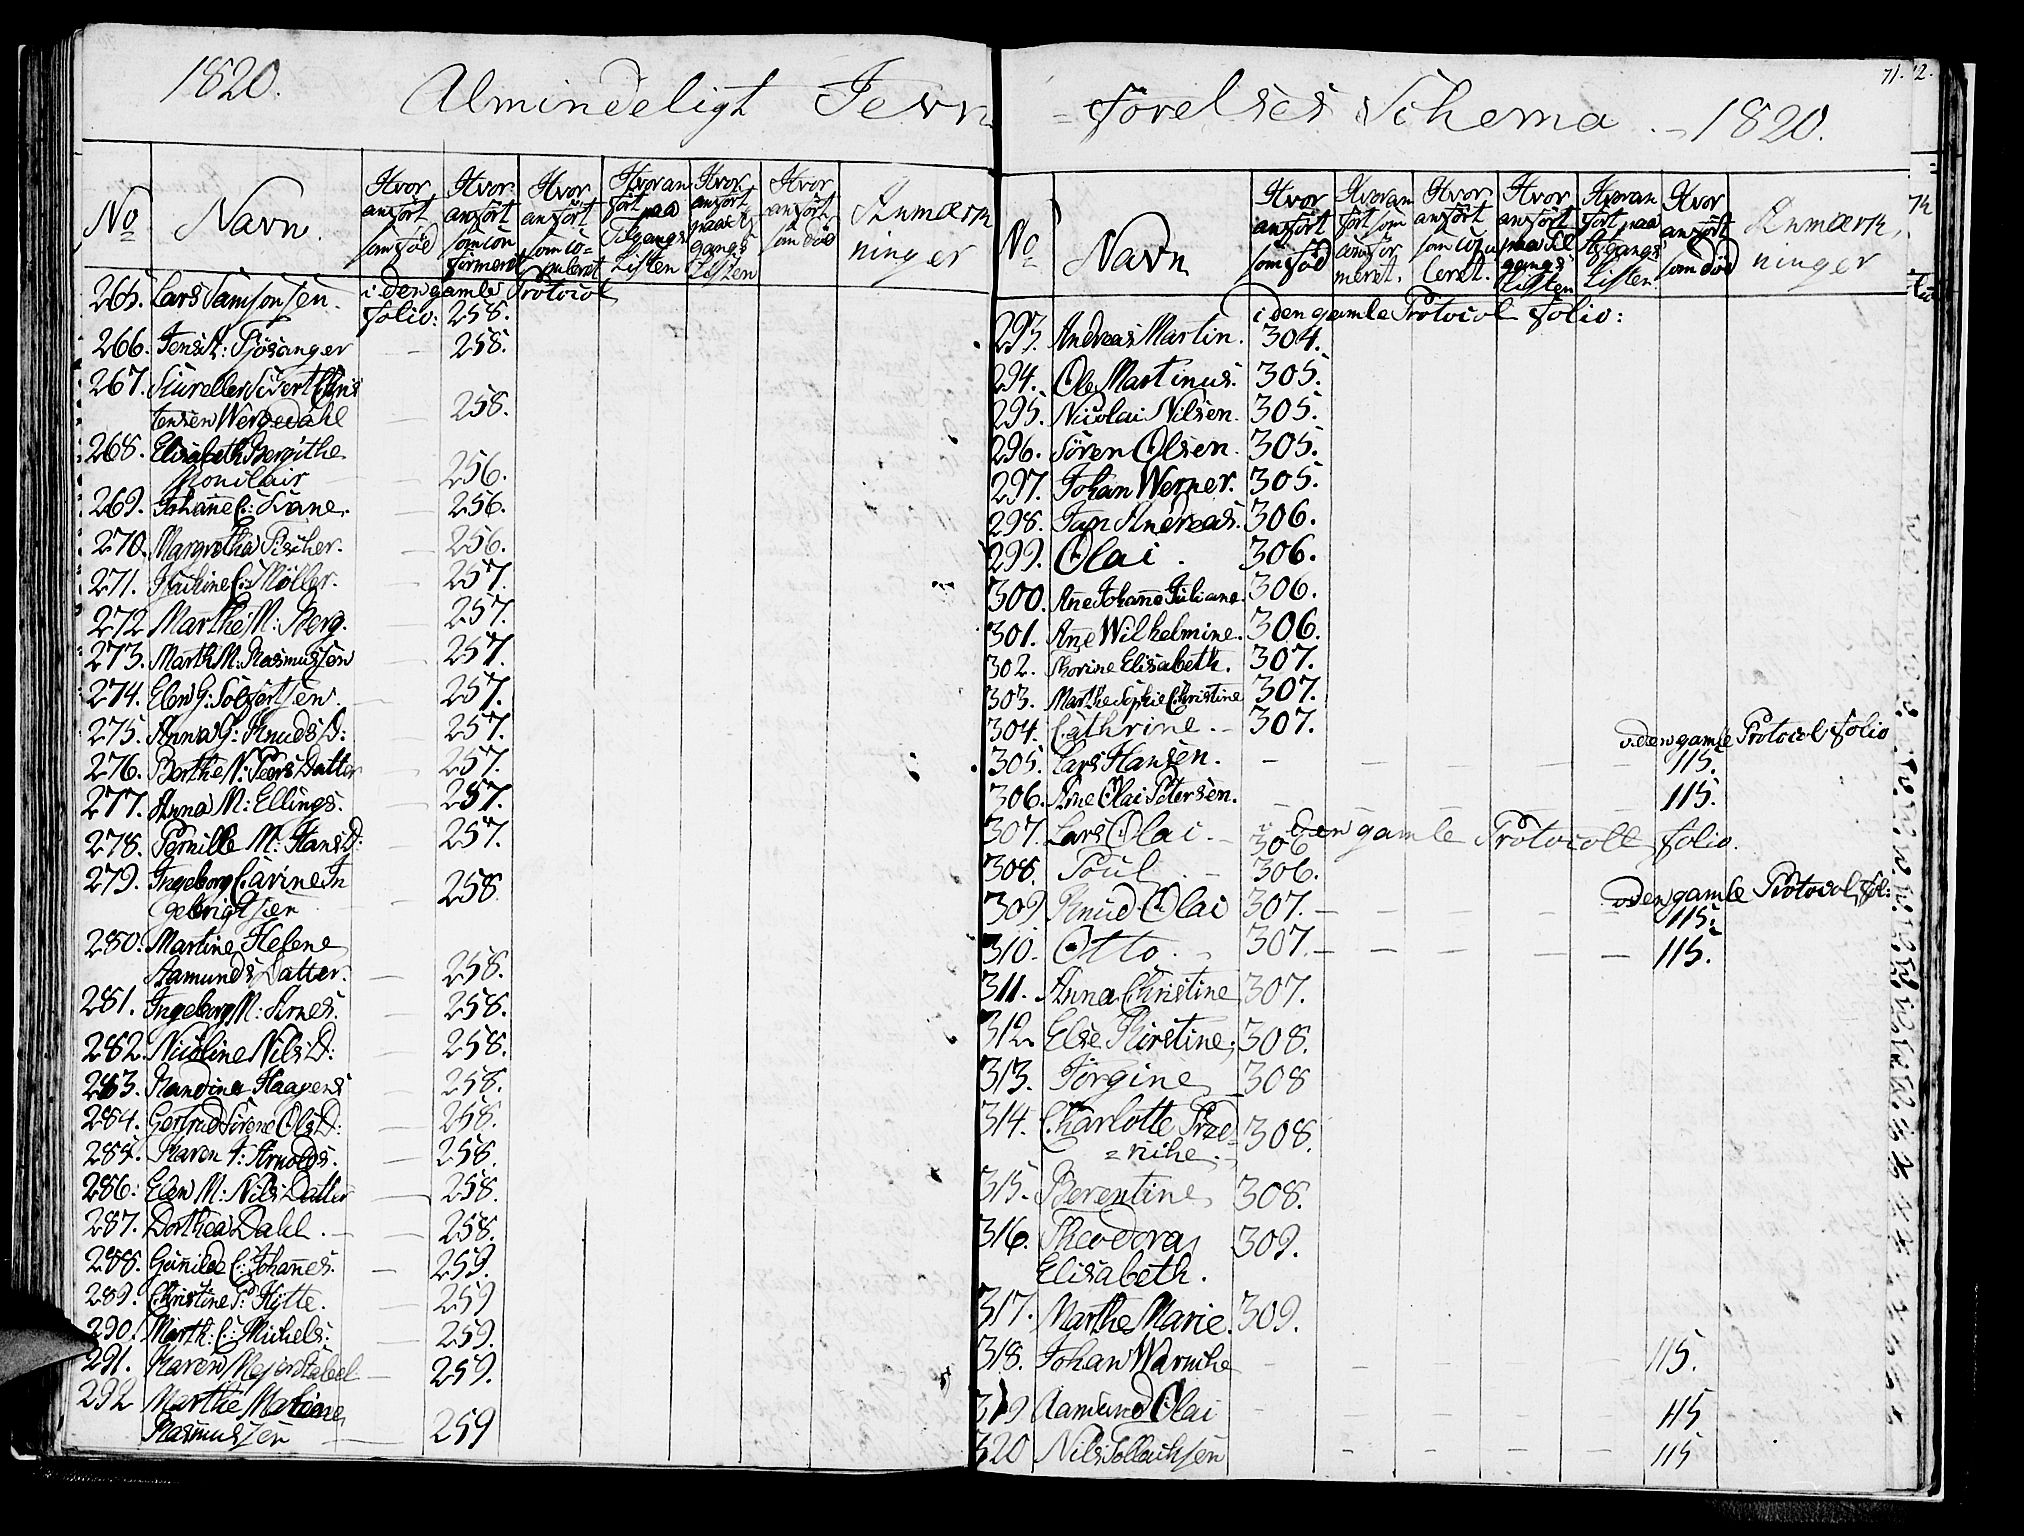 1820. Almindeligt Jevn
No Navn. Hvor anført som fød Hvor anført som confirmeret Hvor anført som copuleret Hvor anført paa Tilgangs Listen Hvor anført paa Afgangs Listen Hvor anført som død Anmærkninger
265. Lars Samsonsen. i den gamle Protocol folio: 258.
266. Jens A: Fjösanger 258.
267. Siur eller Sivert Chris
tensen Wergedahl 258.
268. Elisabeth Bergithe
Monclair 256.
269. Johañe C: Lane. 256.
270. Margretha Fischer. 256.
271. C: Möller. 257.
272 Marthe M: Berg. 257.
273. Marth M: Rasmussen 257.
274. Elen G: 257.
275. Anna G: Knuds D: 257.
276. Berthe N: Peers Datter 257.
277. Anna M: Ellings. 257.
278. Pernille M: Hans D: 257.
279. Ingeborg Carine In
gebrigtsen 258
280. Martine Helene
Aamunds Datter. 258.
281. Ingeborg M: Arnes. 258.
282. Nicoline Nils D: 258.
283. Randina Haagens 258.
284. Gertrud Sörene Ols D: 258.
285. Karen A: Arnolds. 258.
286: Elen M: Nils Datter 258.
287. Dorthea Dahl. 258.
288. Guñild C: Johañes. 259.
289. Christine P: Hytte. 259
290. Marth: C: Michels: 259.
291. Karen Stabel 259.
292 Marthe Malene
Rasmussen 259
71. 2.
= förelses Schema. - 1820.
No Navn Hvor anført som fød Hvor anført som confirmeret. Hvor anført som copuleret. Hvor anført paa Tilgangs Listen Hvor anført paa Afgangs Listen Hvor anført som død Anmærkninger
i den gamle Protocol folio:
293. Andreas Martin. 304.
294. Ole Martinus. 305.
295. Nicolai Nilsen. 305.
296. Sören Olsen. 305.
297. Johan Werner. 305.
298. Jan Andreas. 306.
299. Olai. 306.
300. Añe Johañe Juliane. 306.
301. Añe Wilhelmine. 306.
302. Thorine Elisabeth. 307.
303. Marthe Sophie Christine 307.
304. Cathrine. 307.
i den gamle Protocol folio
305. Lars Hansen. 115.
306. Arne Olai Petersen. 115.
307. Lars Olai 306 i den gamle Protocoll folio.
308. Poul 306.
i den gamle Protocol fol:
309 Knud Olai 307. 115.
310. Otto. 307. 115.
311. Anna Christine 307.
312. Else Kirstine, 308.
313. Jörgine 308
314. Charlotte Fred=
=riche. 308.
315. Berentine 308.
316. Theodora
Elisabeth. 309.
317. Marthe Marie. 309.
318. Johan Warnche 115.
319 Aamund Olai 115
320 Nils Tollachsen 115